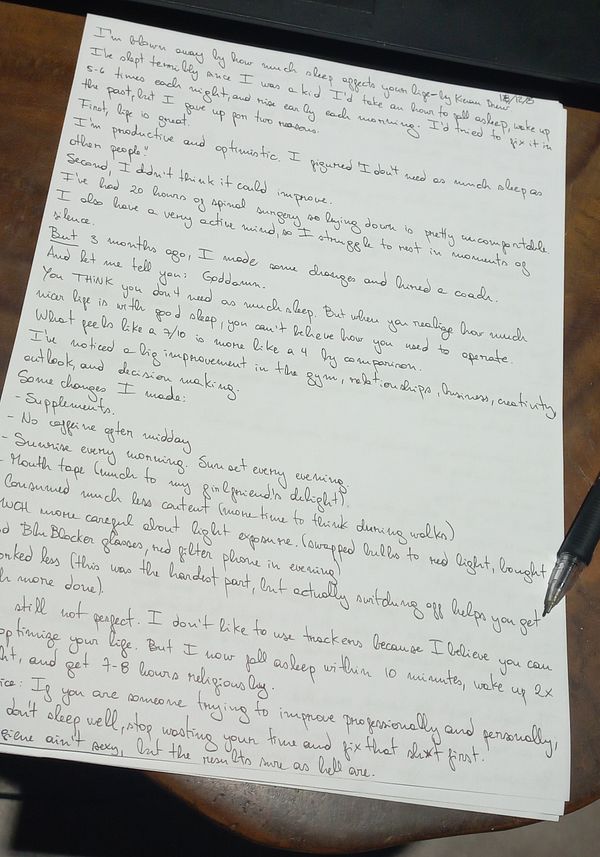 I'm blown away by how much sleep affects your life - by Kieran Drew
I've slept terribly since I was a kid. I'd take an hour to fall asleep, wake up
5-6 times each night, and rise early each morning. I'd tried to fix it in
the past, but I gave up for two reasons.
First, life is great.
I'm productive and optimistic. I figured "I don't need as much sleep as
other people."
Second, I didn't think it could improve.
I've had 20 hours of spinal surgery so laying down is pretty uncomfortable.
I also have a very active mind, so I struggle to rest in moments of
silence.
But 3 months ago, I made some changes and hired a coach.
And let me tell you: Goddamn.
You THINK you don't need as much sleep. But when you realize how much
nicer life is with good sleep, you can't believe how you used to operate.
What feels like a 7/10 is more like a 4 by comparison.
I've noticed a big improvement in the gym, relationships, business, creativity,
outlook, and decision making.
Some changes I made:
- Supplements.
- No caffeine after midday
- Sunrise every morning. Sunset every evening.
- Mouth tape (much to my girlfriend's delight).
Consumed much less content (more time to think during walks)
more careful about light exposure. (swapped bulbs to red light, bought
BluBlocker glasses, red filter phone in evening)
worked less (this was the hardest part, but actually switching off helps you get
more done).
still not perfect. I don't like to use trackers because I believe you can
optimize your life. But I now fall asleep within 10 minutes, wake up 2x
and get 7-8 hours religiously.
If you are someone trying to improve professionally and personally,
don't sleep well, stop wasting your time and fix that sh*t first.
ain't sexy, but the results sure as hell are.